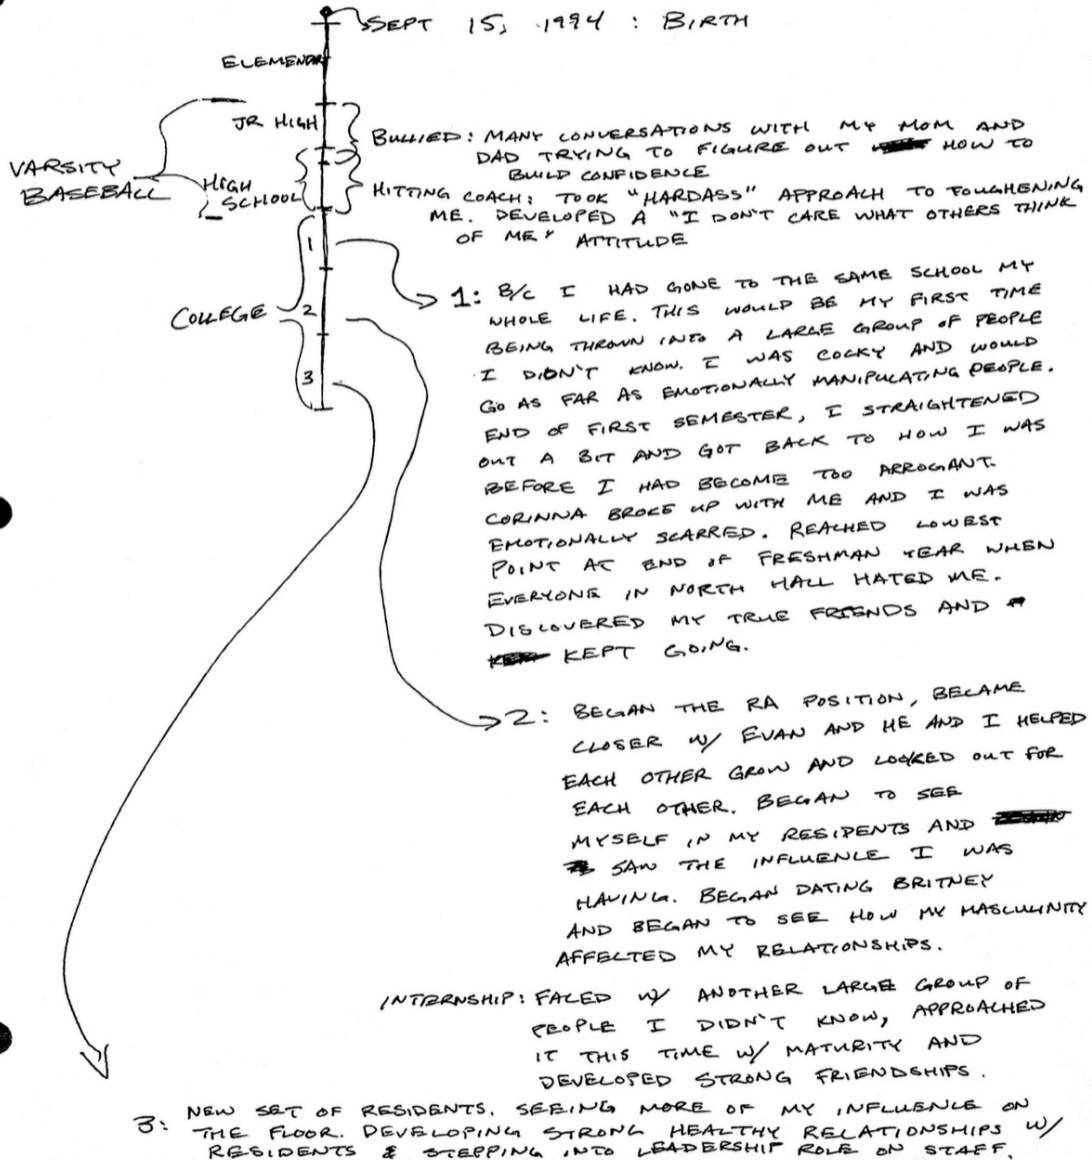 SEPT 15, 1994 : BIRTH
ELEMENTAR
JR HIGH
VARSITY
BASEBALL
HIGH
SCHOOL
BULLIED: MANY CONVERSATIONS WITH MY MOM AND
DAD TRYING TO FIGURE OUT HOW TO
BUILD CONFIDENCE
HITTING COACH: TOOK "HARDASS" APPROACH TO TOUGHENING
ME. DEVELOPED A "I DON'T CARE WHAT OTHERS THINK
OF ME" ATTITUDE
COLLEGE
1
2
3
1: B/C I HAD GONE TO THE SAME SCHOOL MY
WHOLE LIFE. THIS WOULD BE MY FIRST TIME
BEING THROWN INTO A LARGE GROUP OF PEOPLE
I DIDN'T KNOW. I WAS COCKY AND WOULD
GO AS FAR AS EMOTIONALLY MANIPULATING PEOPLE.
END OF FIRST SEMESTER, I STRAIGHTENED
OUT A BIT AND GOT BACK TO HOW I WAS
BEFORE I HAD BECOME TOO ARROGANT.
CORINNA BROKE UP WITH ME AND I WAS
EMOTIONALLY SCARRED. REACHED LOWEST
POINT AT END OF FRESHMAN YEAR WHEN
EVERYONE IN NORTH HALL HATED ME.
DISCOVERED MY TRUE FRIENDS AND
KEPT GOING.
2: BEGAN THE RA POSITION, BECAME
CLOSER W/ EVAN AND HE AND I HELPED
EACH OTHER GROW AND LOOKED OUT FOR
EACH OTHER. BEGAN TO SEE
MYSELF IN MY RESIDENTS AND
SAW THE INFLUENCE I WAS
HAVING. BEGAN DATING BRITNEY
AND BEGAN TO SEE HOW MY MASCULINITY
AFFECTED MY RELATIONSHIPS.
INTERNSHIP: FACED W/ ANOTHER LARGE GROUP OF
PEOPLE I DIDN'T KNOW, APPROACHED
IT THIS TIME W/ MATURITY AND
DEVELOPED STRONG FRIENDSHIPS.
3: NEW SET OF RESIDENTS. SEEING MORE OF MY INFLUENCE ON
THE FLOOR. DEVELOPING STRONG HEALTHY RELATIONSHIPS W/
RESIDENTS & STEPPING INTO LEADERSHIP ROLE ON STAFF.